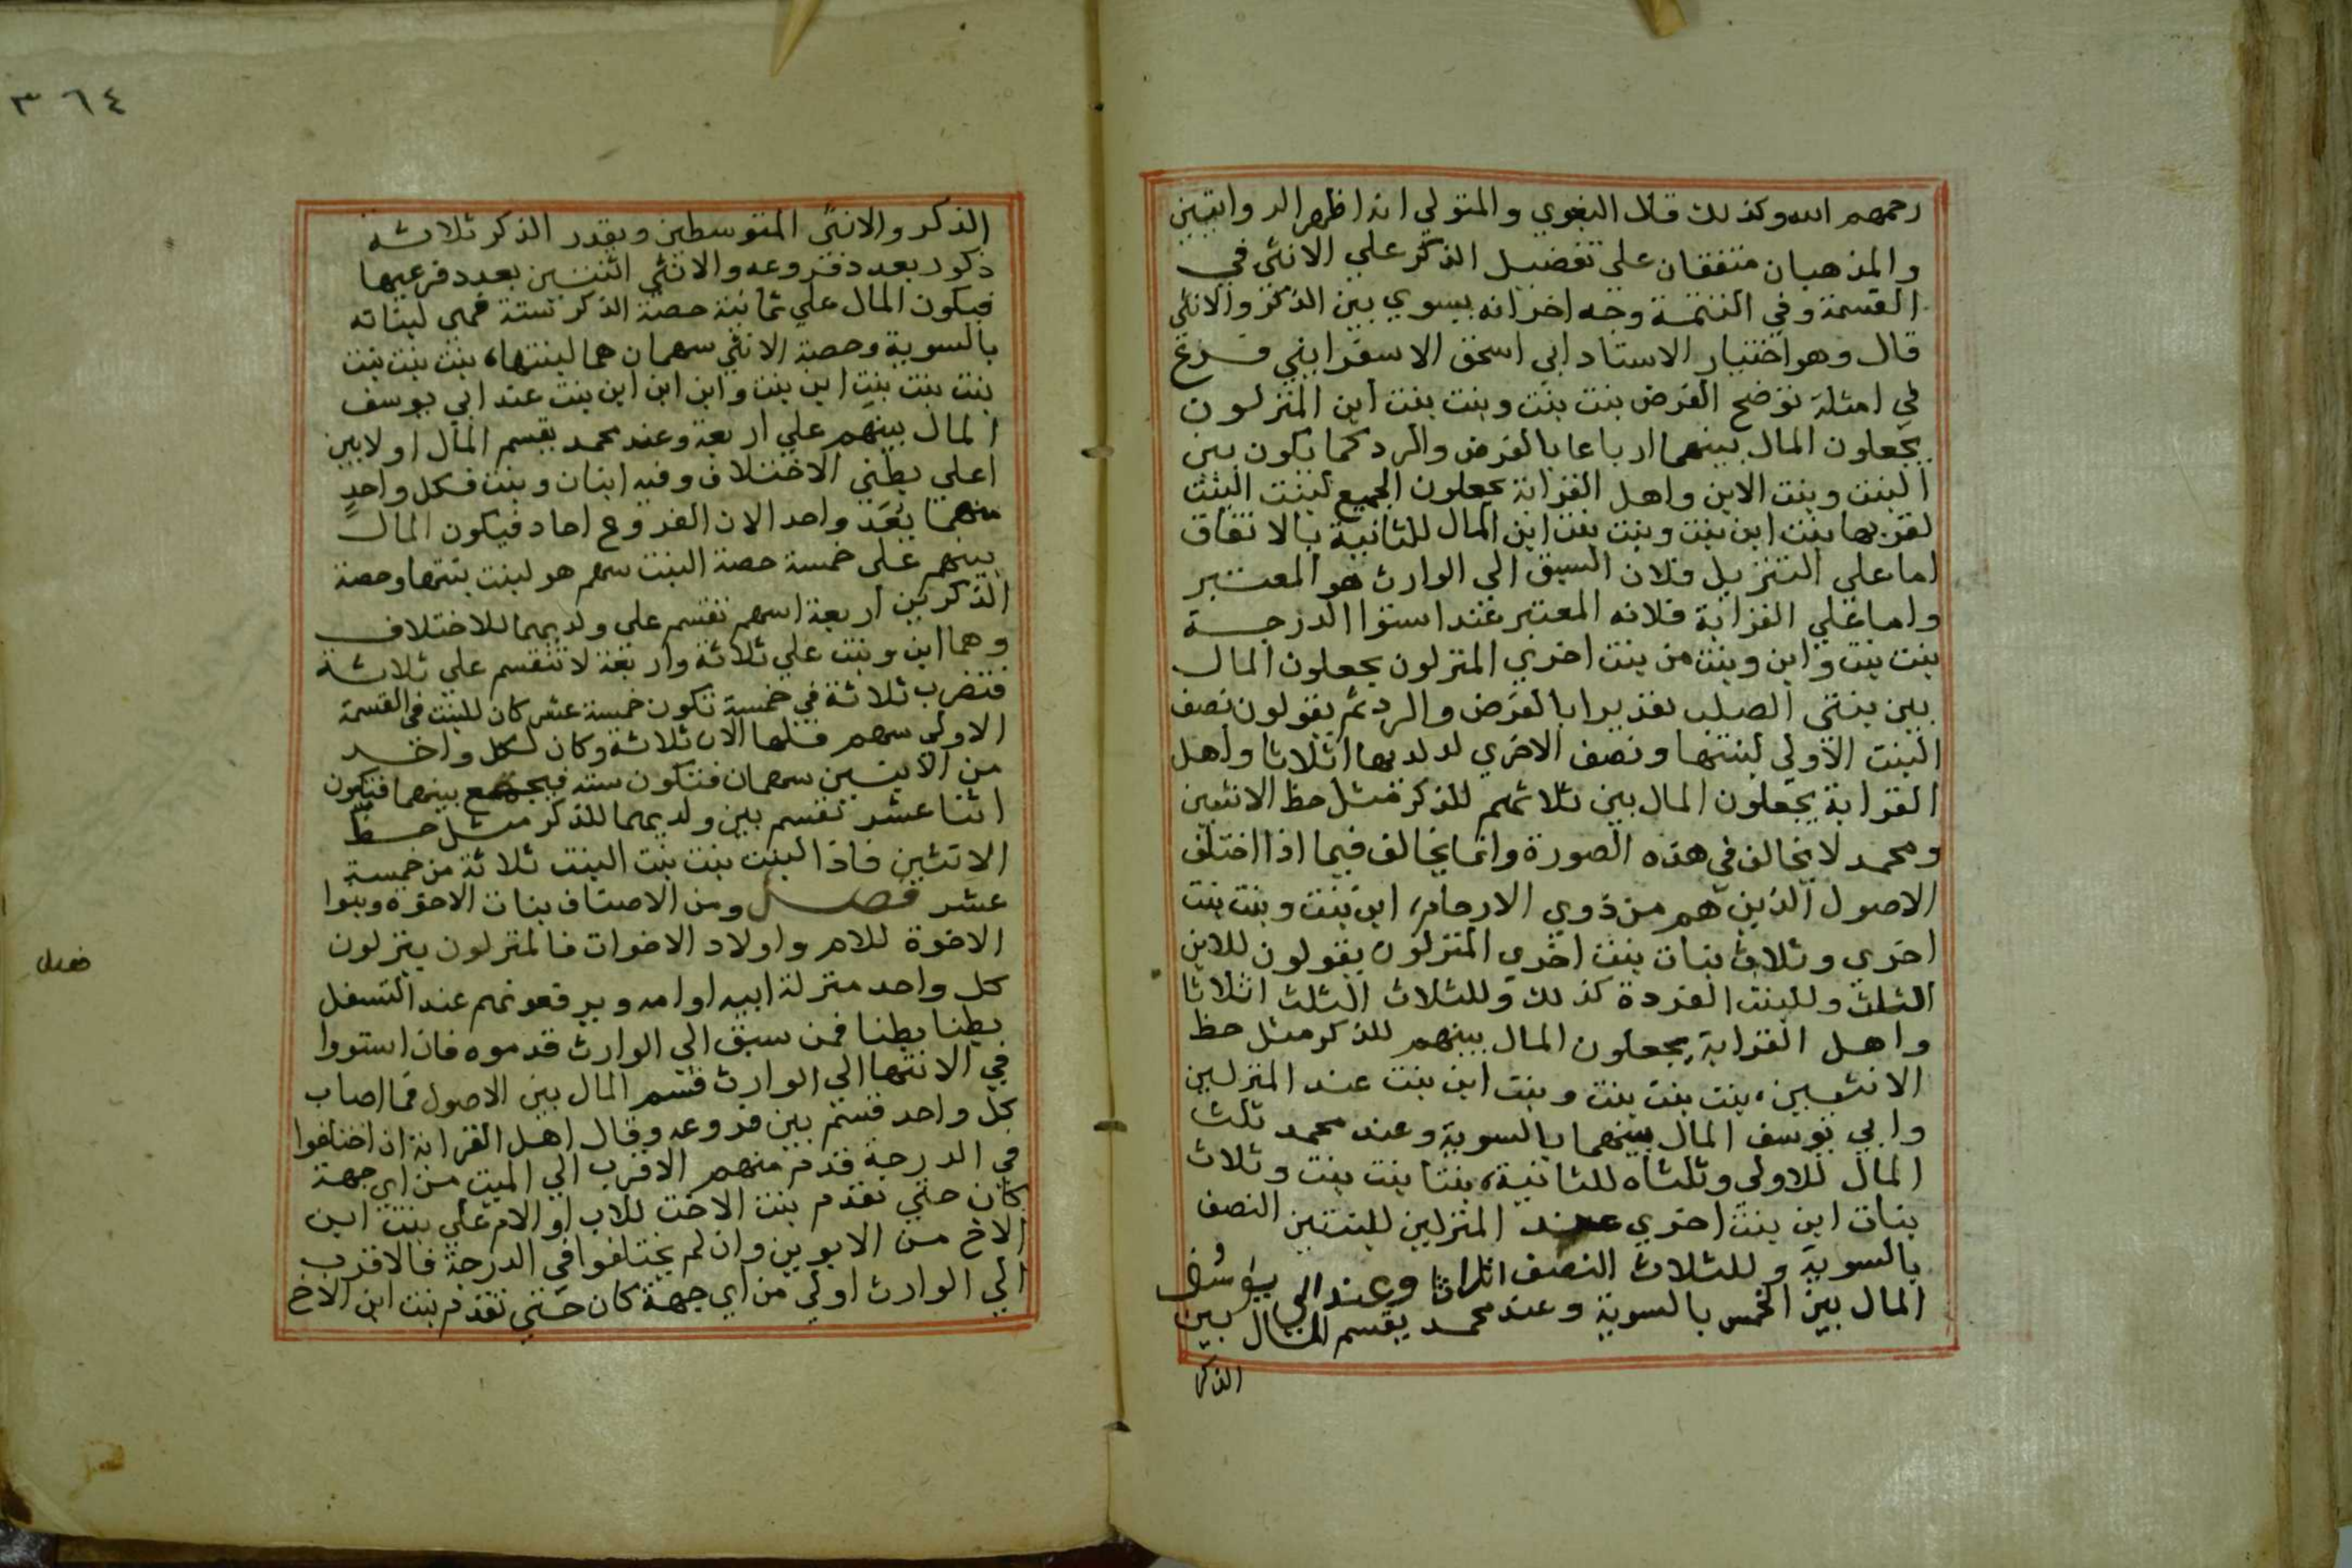 رحمهم الله وكذلك قال البغوي والمتولي انه اظهر الروايتين
والمذهبان متفقان على تفضيل الذكر علي الانثى في
القسمة وفي التتمة وجه اخر انه يسوي بين الذكر والانثى
قال وهو اختيار الاستاد ابي اسحق الاسفرايني فرع
في امثلة توضح الغرض بنت بنت وبنت بنت ابن المنزلون
يجعلون المال بينهما ارباعا بالفرض والرد كما يكون بين
البنت وبنت الابن واهل القرابة يجعلون الجميع لبنت البنت
لقربها بنت ابن بنت وبنت بنت ابن المال للثانية بالاتفاق
اما علي التنزيل فلان السبق الي الوارث هو المعتبر
واما علي القرابة فلانه المعتبر عند استوا الدرجة
بنت بنت وابن وبنت من بنت اخري المنزلون يجعلون المال
بين بنتي الصلب تقديرا بالفرض والرد ثم يقولون نصف
البنت الاولي لبنتها ونصف الاخري لولديها اثلاثا واهل
القرابة يجعلون المال بين ثلاثتهم للذكر مثل حظ الانثيين
ومحمد لا يخالف في هذه الصورة وانما يخالف فيما اذا اختلف
الاصول الذين هم من ذوي الارحام، ابن بنت وبنت بنت
اخري وثلاث بنات بنت اخري المنزلون يقولون للابن
الثلث وللبنت الفردة كذلك وللثلاث الثلث اثلاثا
واهل القرابة يجعلون المال بينهم للذكر مثل حظ
الانثيين، بنت بنت بنت وبنت ابن بنت عند المنزلين
وابي يوسف المال بينهما بالسوية وعند محمد ثلث
المال للاولى وثلثاه للثانية، بنتا بنت بنت وثلاث
بنات ابن بنت اخري عند المنزلين للبنتين النصف
بالسوية وللثلاث النصف اثلاثا وعند ابي يوسف
المال بين الخمس بالسوية وعند محمد يقسم المال بين
الذكر
٣٦٤
الذكر والانثى المتوسطين ويقدر الذكر ثلاثة
ذكور بعدد فروعه والانثي اثنتين بعدد فرعيها
فيكون المال علي ثمانية حصة الذكر ستة فهي لبناته
بالسوية وحصة الانثي سهمان هما لبنتها، بنت بنت بنت
بنت بنت بنت ابن بنت وابن ابن ابن بنت عند ابي يوسف
المال بينهم علي اربعة وعند محمد يقسم المال اولا بين
اعلي بطني الاختلاف وفيه ابنان وبنت فكل واحد
منهما يعد واحد الان الفروع احاد فيكون المال
بينهم على خمسة حصة البنت سهم هو لبنت بنتها وحصة
الذكرين اربعة اسهم تقسم على ولديهما للاختلاف
وهما ابن وبنت علي ثلاثة واربعة لا تنقسم علي ثلاثة
فتضرب ثلاثة في خمسة تكون خمسة عشر كان للبنت في القسمة
الاولي سهم فلها الان ثلاثة وكان لكل واحد
من الابنين سهمان فتكون ستة فيجمع بينهما فتكون
اثنا عشر تقسم بين ولديهما للذكر مثل حظ
الانثيين فاذا لبنت بنت بنت البنت ثلاثة من خمسة
عشر فصل ومن الاصناف بنات الاخوة وبنوا
الاخوة للام واولاد الاخوات فالمنزلون ينزلون
كل واحد منزلة ابيه او امه ويرفعونهم عند التسفل
بطنا بطنا فمن سبق الي الوارث قدموه فان استووا
في الانتها الي الوارث قسم المال بين الاصول فما اصاب
كل واحد قسم بين فروعه وقال اهل القرابة ان اختلفوا
في الدرجة قدم منهم الاقرب الي الميت من اي جهة
كان حتي تقدم بنت الاخت للاب او الام علي بنت ابن
الاخ من الابوين وان لم يختلفوا في الدرجة فالاقرب
الي الوارث اولي من اي جهة كان حتي تقدم بنت ابن الاخ